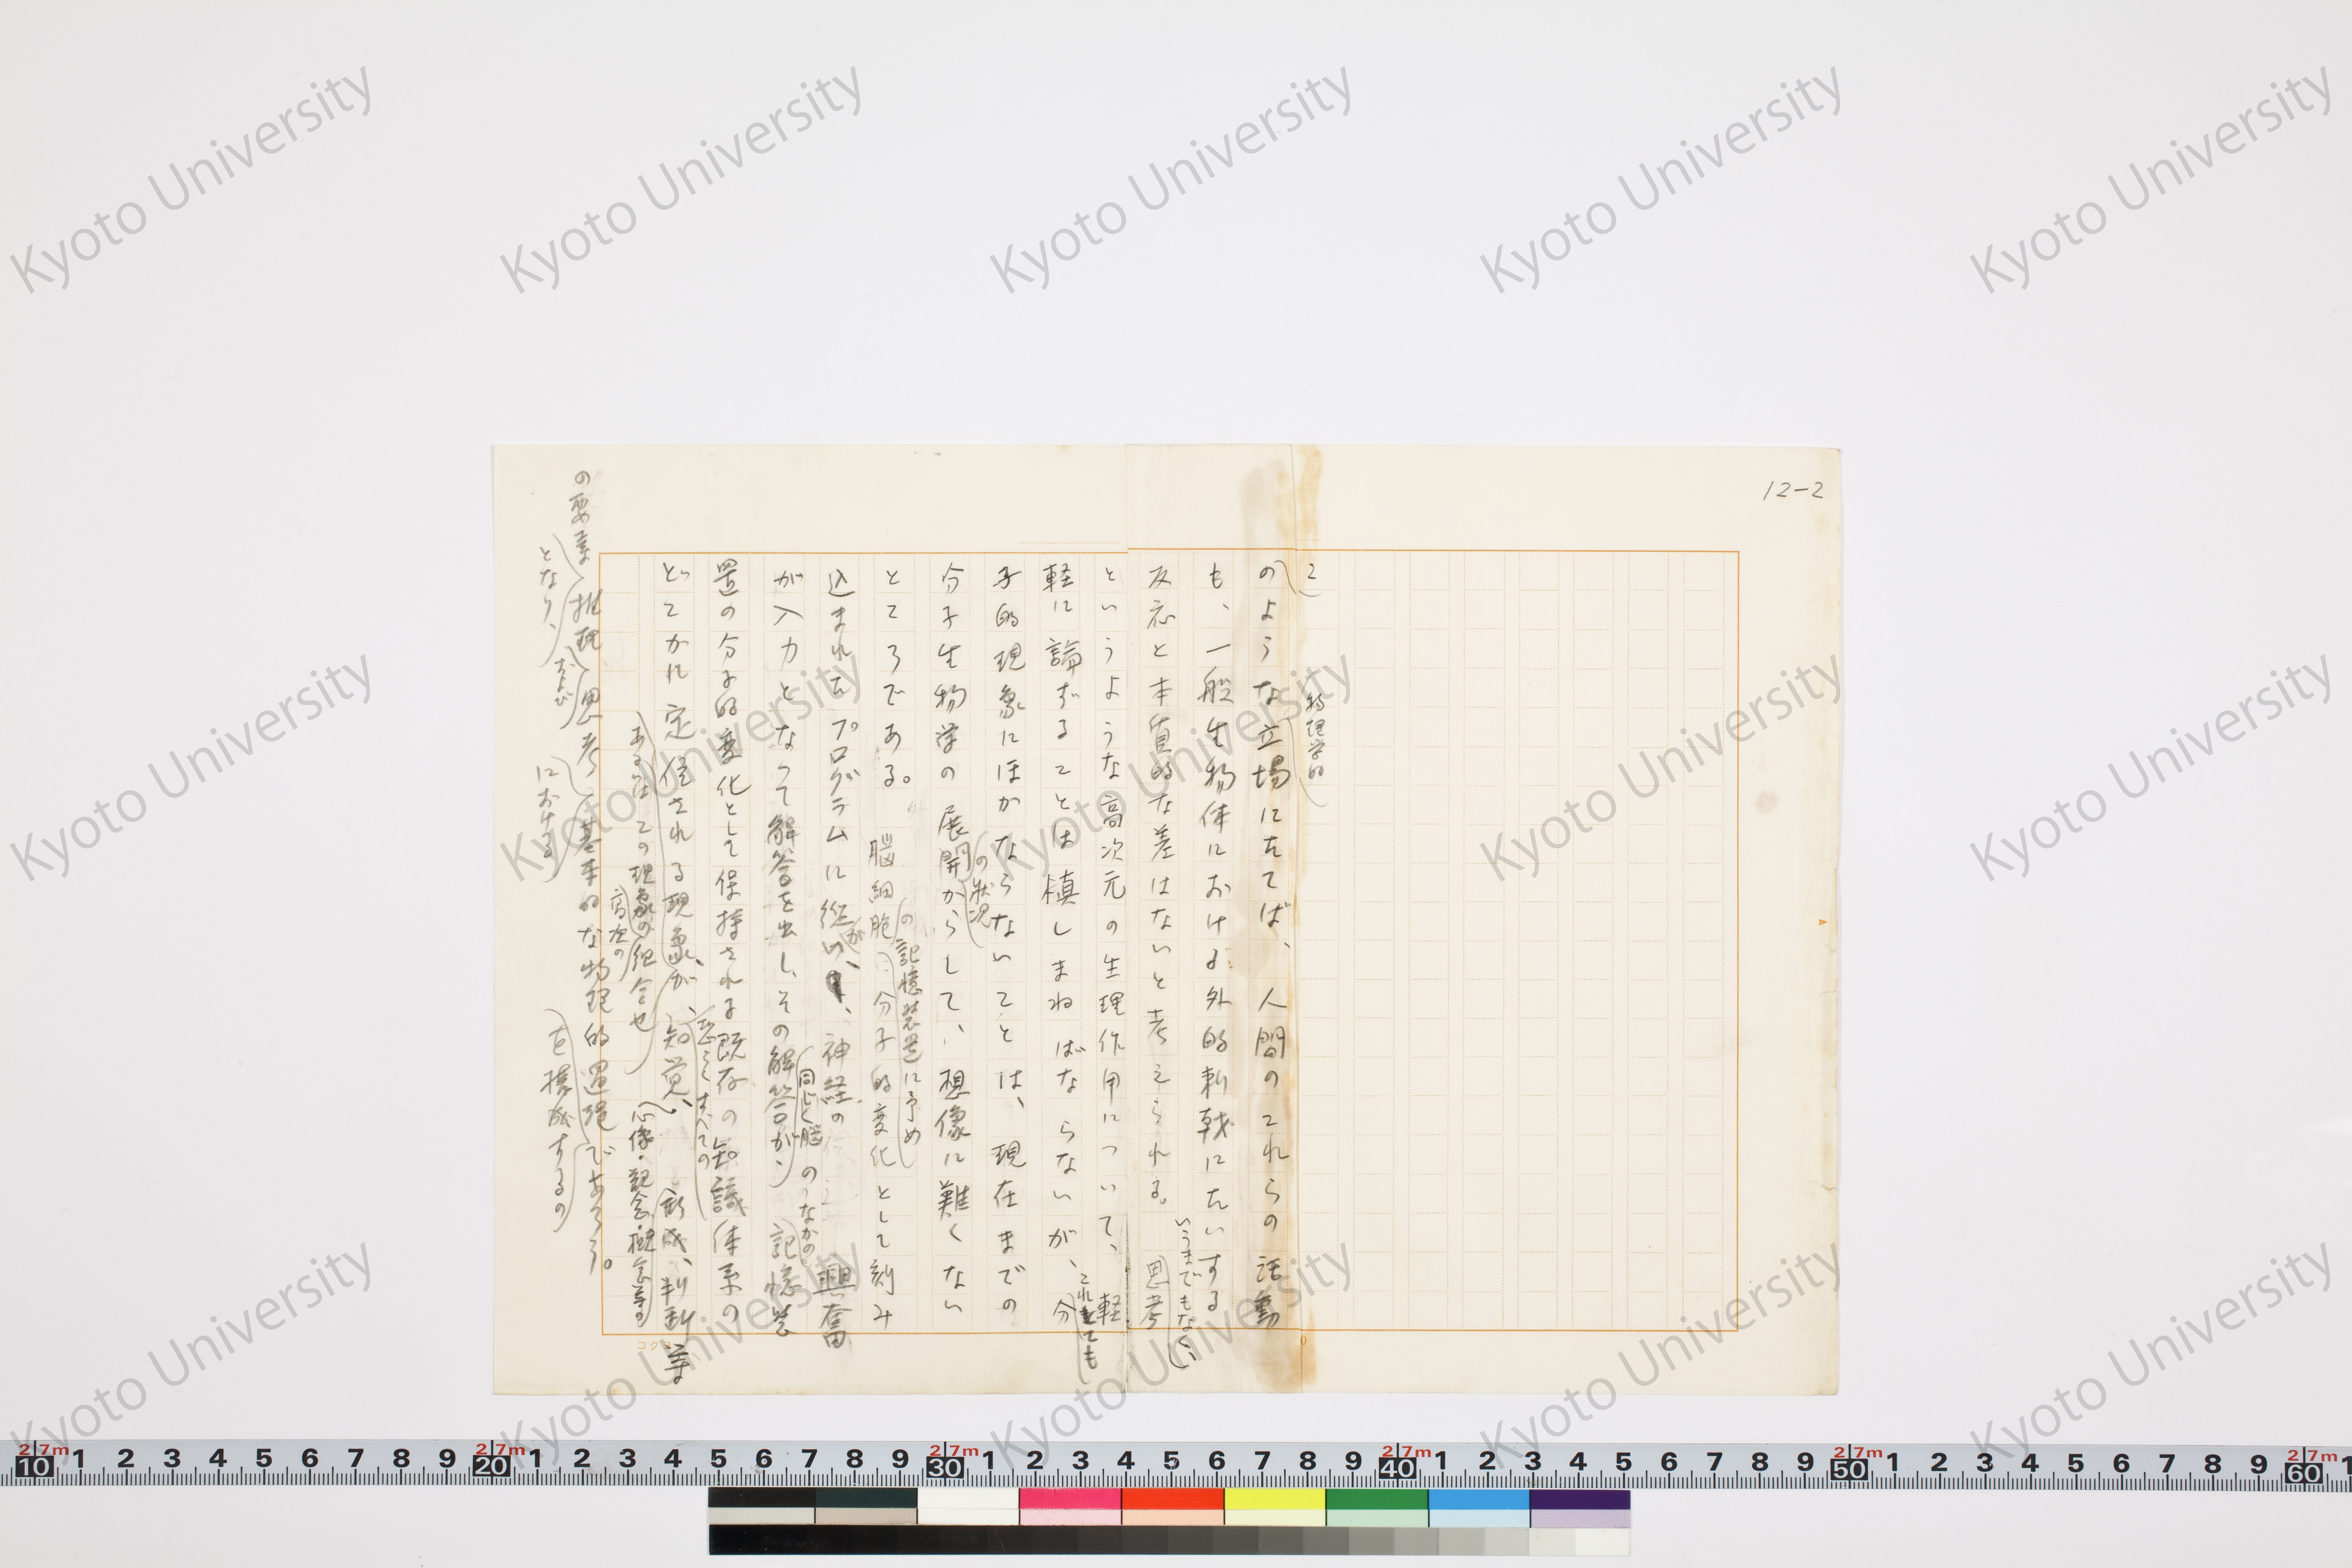 12-2
こ
のような立場にたてば、人間のこれらの活動
物理学的
も、一般生物体における外的刺戟にたいする
反応と本質的な差はないと考えられる。思考
いうまでもなく、
というような高次元の生理作用について、軽
軽に論ずることは慎しまねばならないが、分
これとても
子的現象にほかならないことは、現在までの
分子生物学の展開からして、想像に難くない
の状況
ところである。脳細胞分子的変化として刻み
の記憶装置に予め
込まれたプログラムに従い、神経の興奮
が
が入力となって解答を出し、その解答が、記憶装
同じく脳のなかの
置の分子的変化として保持される既存の知識体系の
どこかに定位される現象、が知覚、形成、判断等
すべての
あるいはこの現象の組合せ
高次の
心像・観念・概念等の
の要素推理、思考基本的な物理的過程であろう。
となり、
および
における
を構成するの
コクヨ
Kyoto University